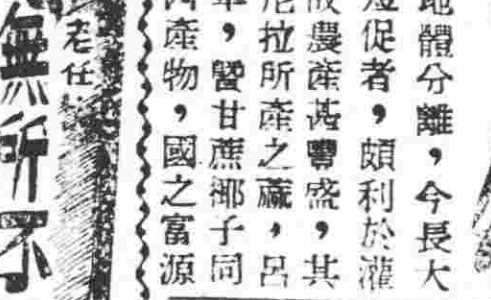 地體分離，今長大
促者，頗利於灌
農產甚豐盛，其
尼拉所產之蔴，呂
，暨甘蔗椰子同
產物，國之富源
老任
無所不